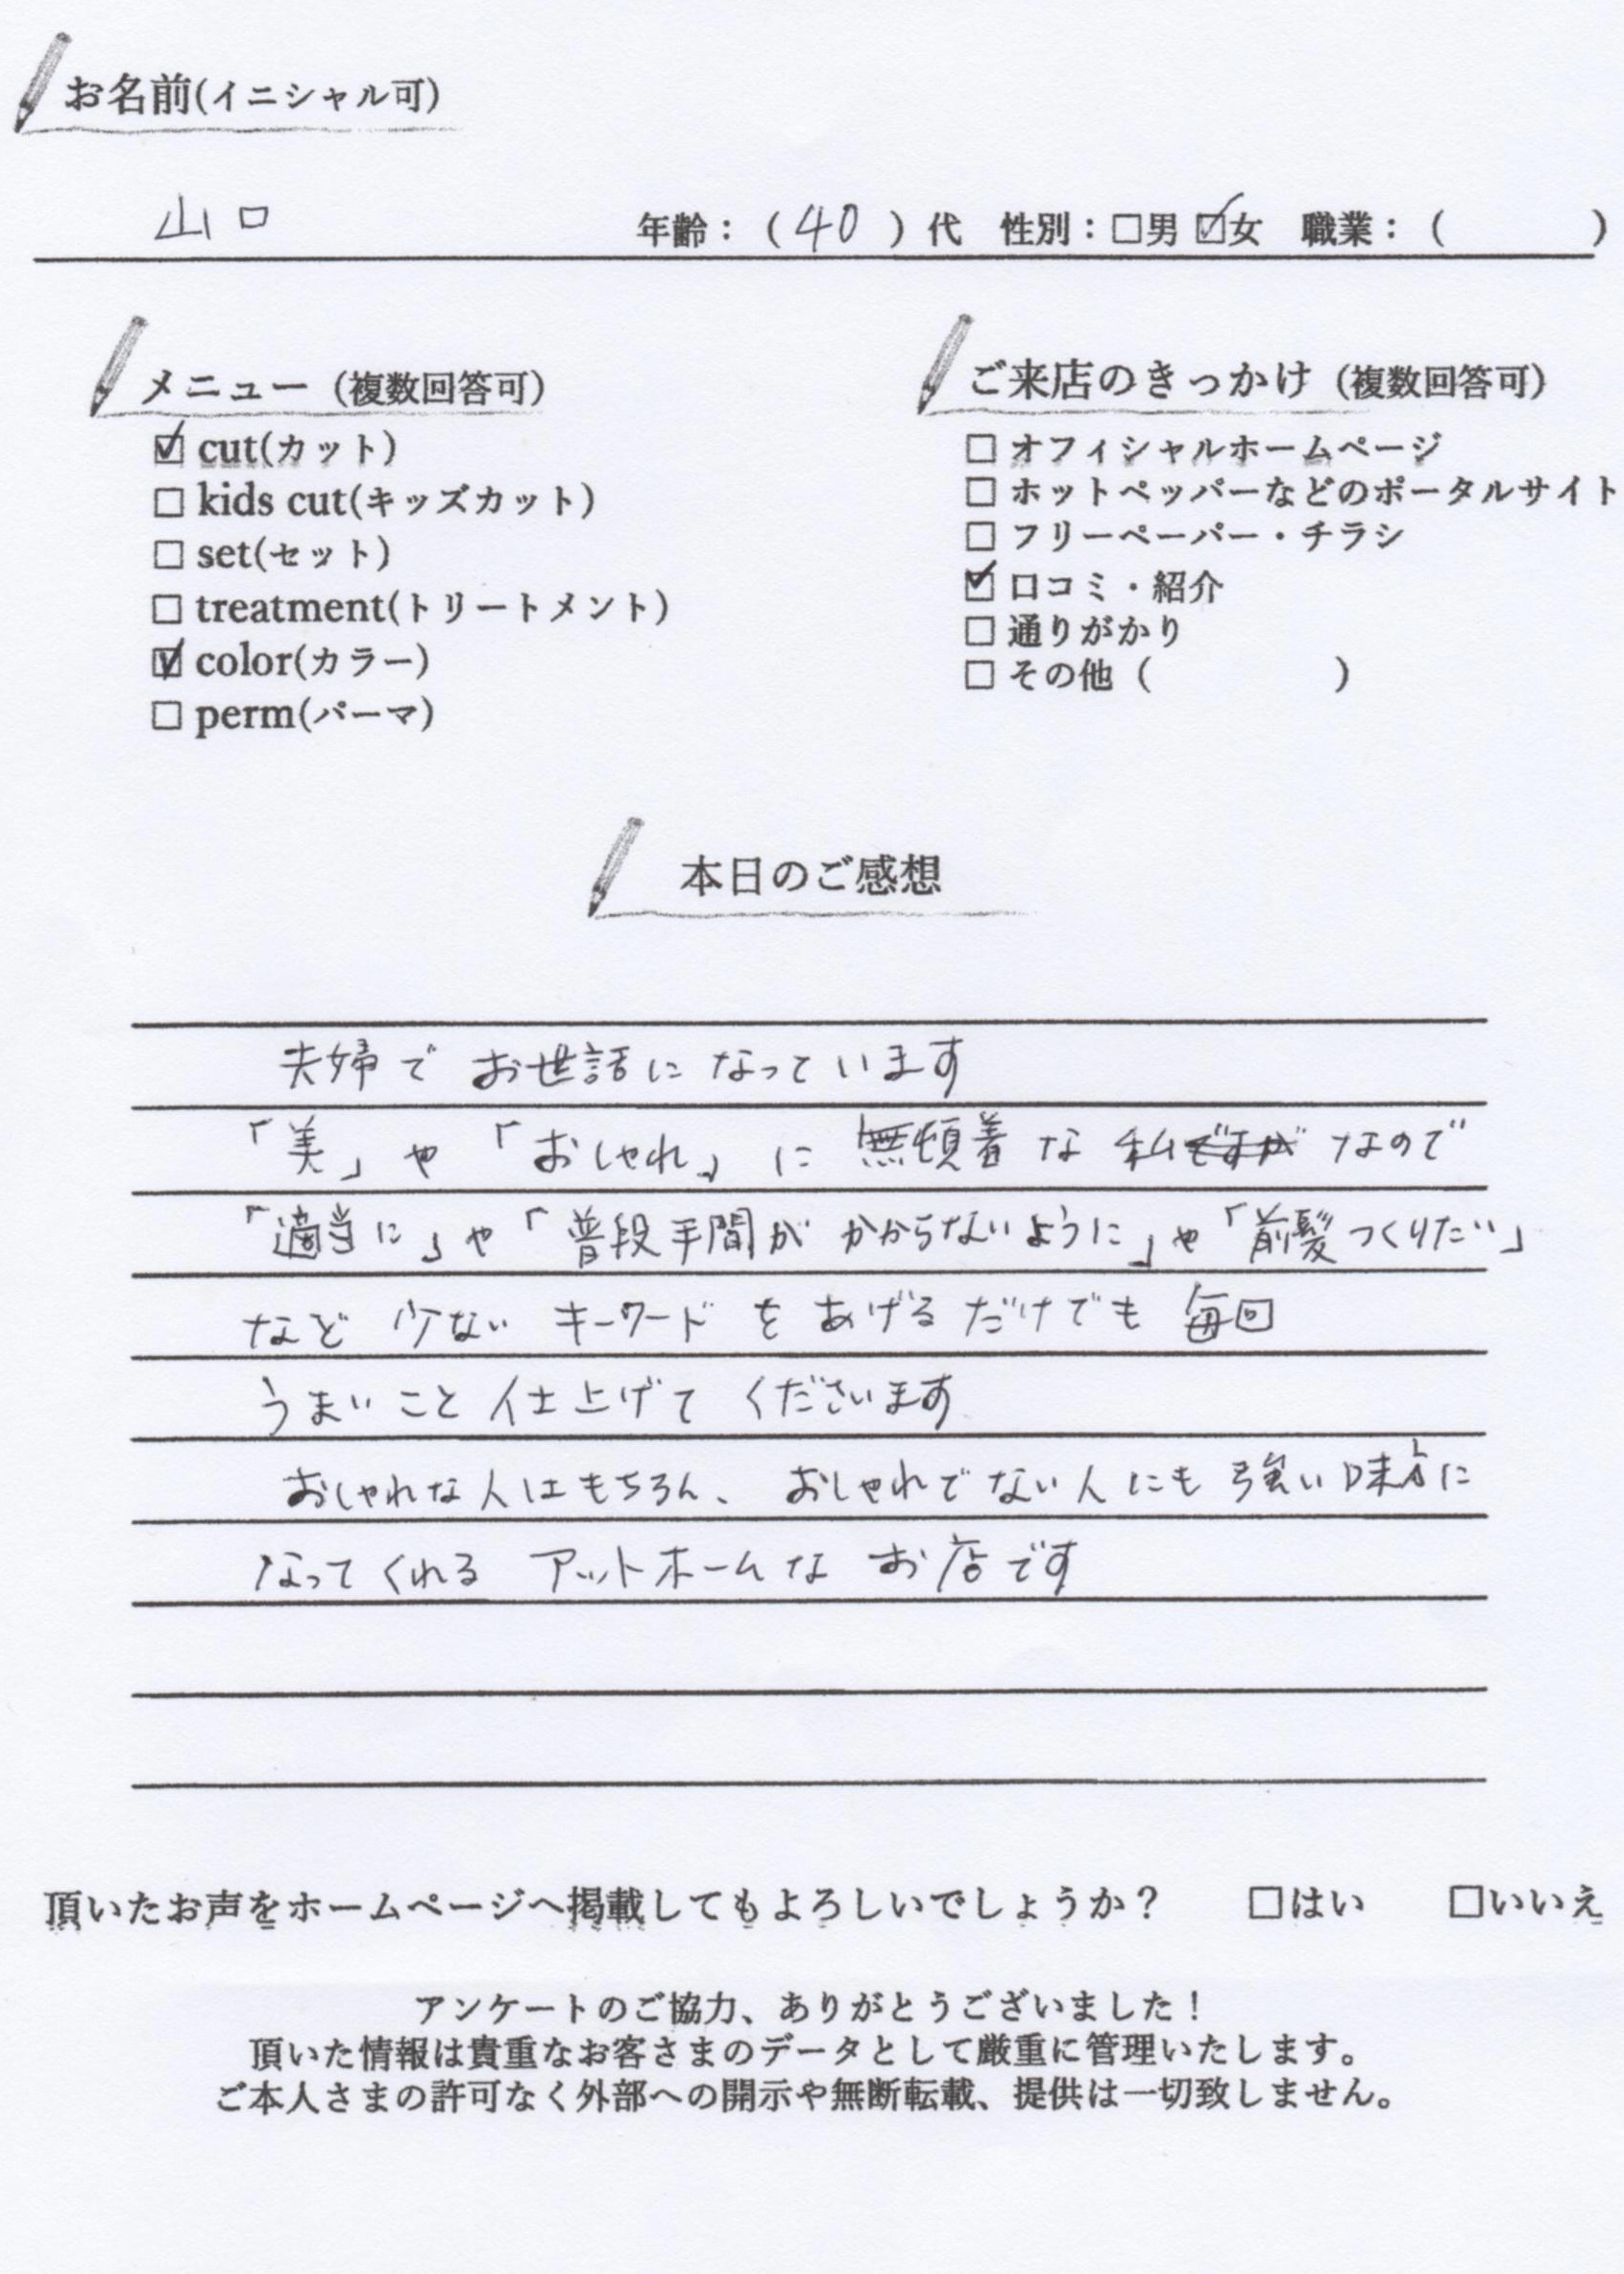 お名前(イニシャル可)
山口 年齢：（40）代 性別：□男 ☑女 職業：（ ）
メニュー（複数回答可）
☑ cut(カット)
□ kids cut(キッズカット)
□ set(セット)
□ treatment(トリートメント)
☑ color(カラー)
□ perm(パーマ)
ご来店のきっかけ（複数回答可）
□ オフィシャルホームページ
□ ホットペッパーなどのポータルサイト
□ フリーペーパー・チラシ
☑ 口コミ・紹介
□ 通りがかり
□ その他（ ）
本日のご感想
夫婦で お世話に なっています
「美」や「おしゃれ」に 無頓着 な 私ですが なので
「適当に」や「普段手間が かからないように」や「前髪つくりたい」
など 少ない キーワード を あげる だけでも 毎回
うまいこと 仕上げて くださいます
おしゃれな人はもちろん、おしゃれでない人にも 強い味方に
なってくれる アットホームな お店です
頂いたお声をホームページへ掲載してもよろしいでしょうか？ □はい □いいえ
アンケートのご協力、ありがとうございました！
頂いた情報は貴重なお客さまのデータとして厳重に管理いたします。
ご本人さまの許可なく外部への開示や無断転載、提供は一切致しません。